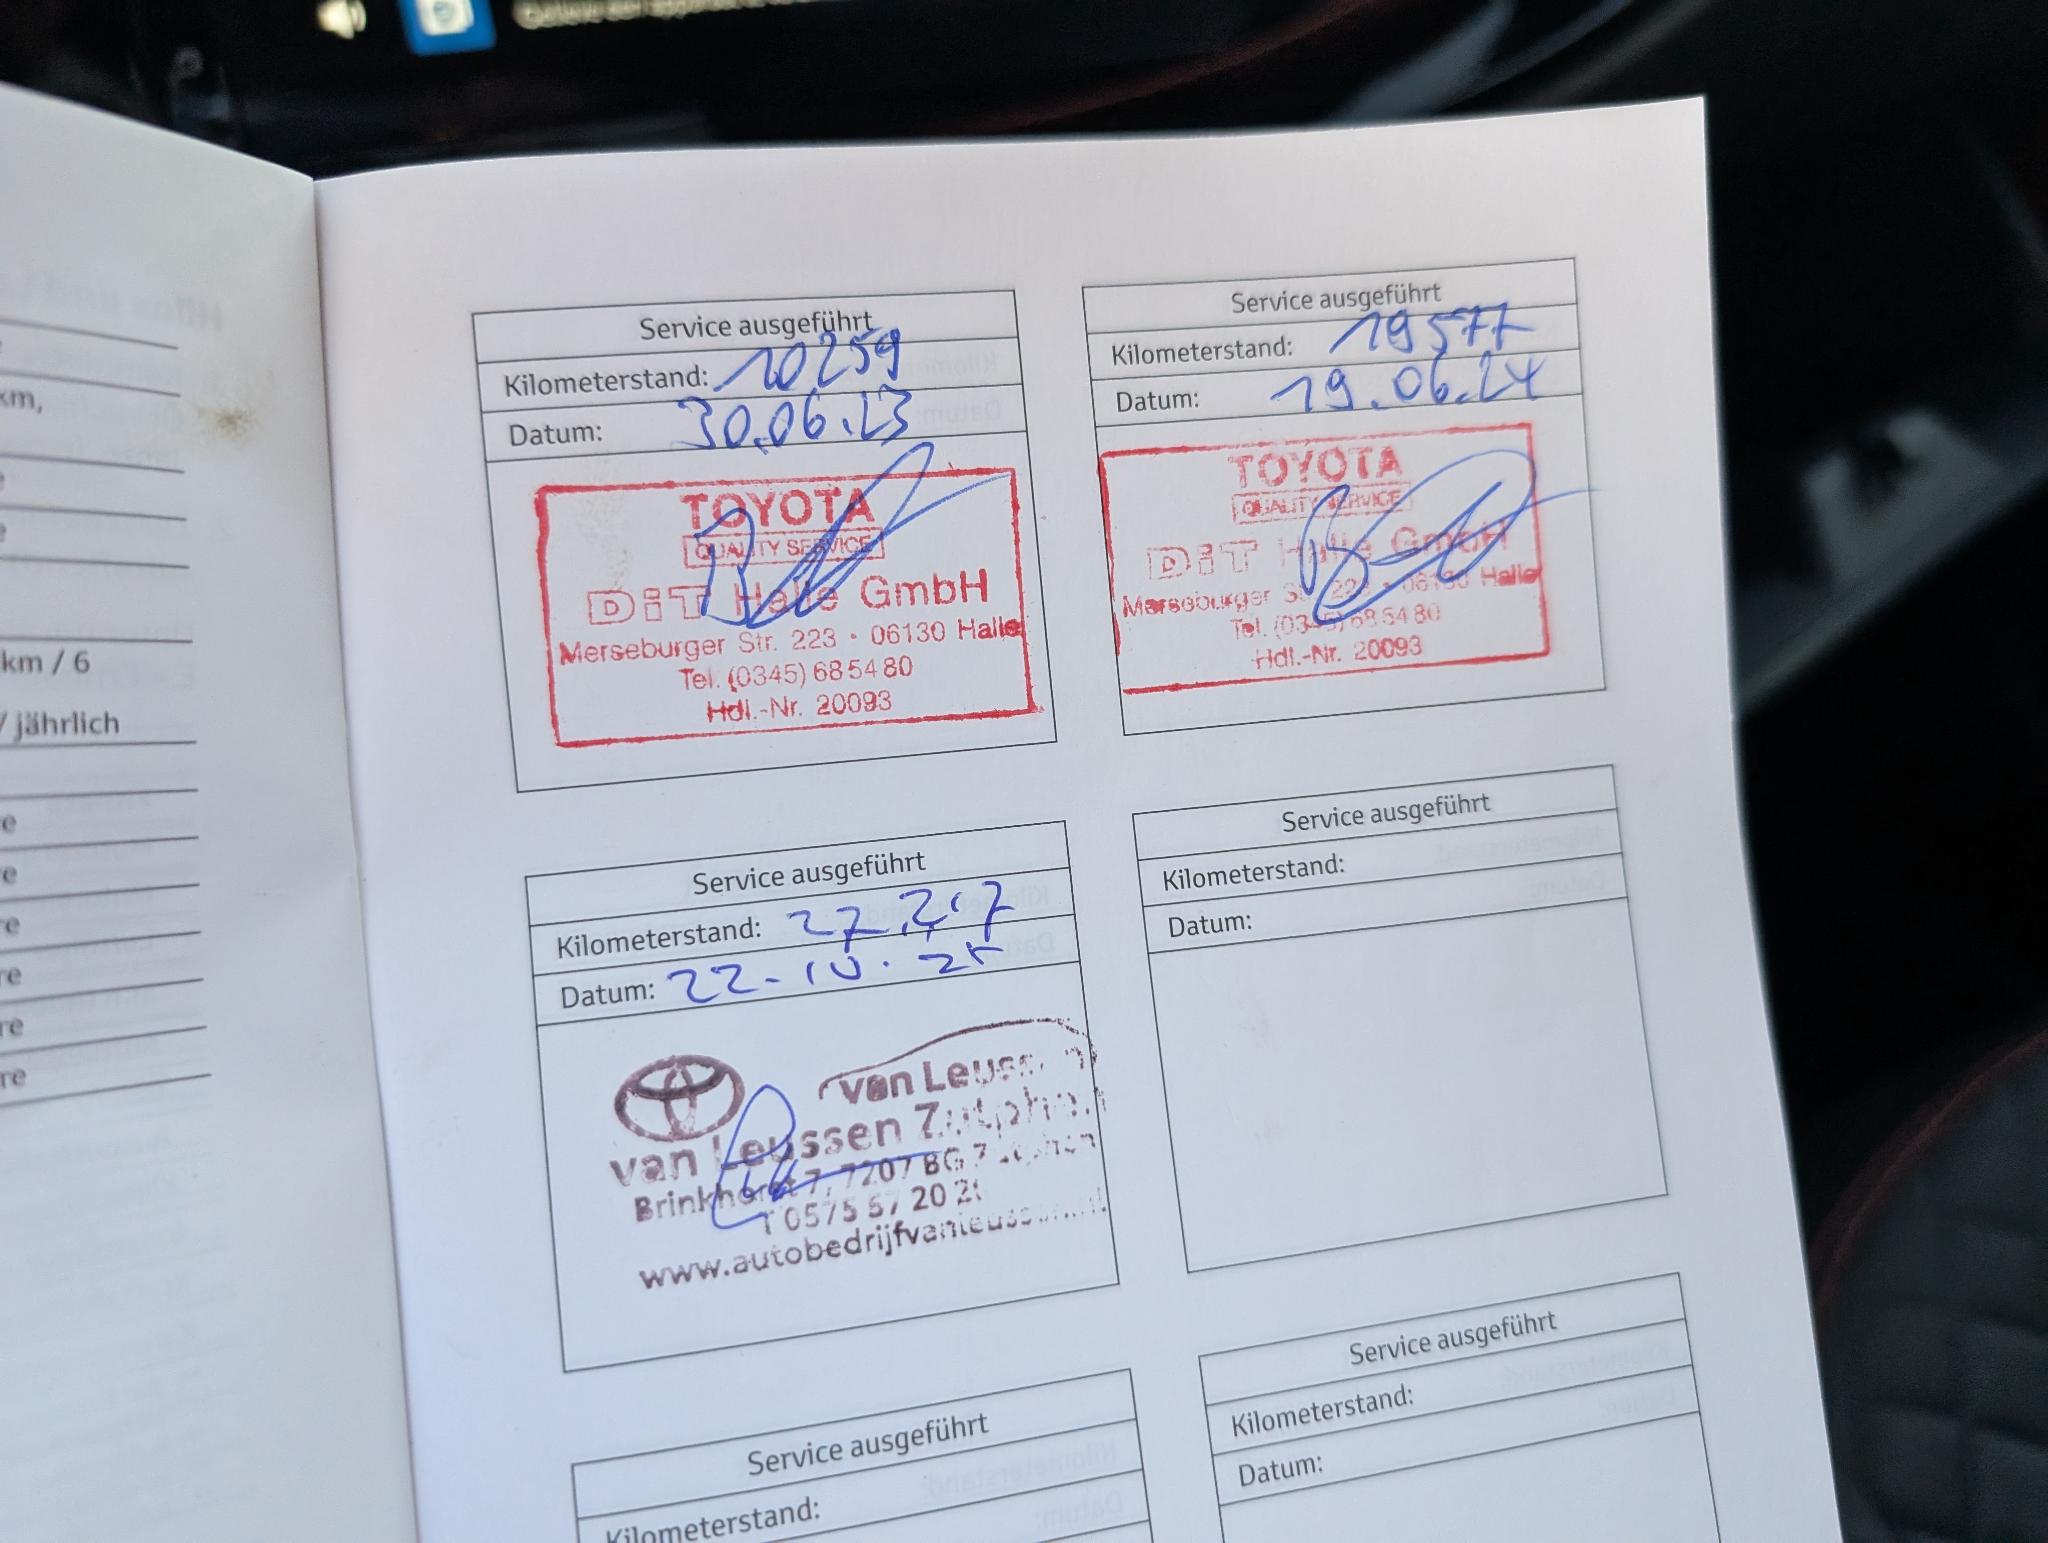 km,
km / 6
/ jährlich
re
re
re
re
re
Service ausgeführt
Kilometerstand: 10259
Datum: 30.06.23
TOYOTA
QUALITY SERVICE
DiT Halle GmbH
Merseburger Str. 223 · 06130 Halle
Tel. (0345) 68 54 80
Hdl.-Nr. 20093
Service ausgeführt
Kilometerstand: 19577
Datum: 19.06.24
TOYOTA
QUALITY SERVICE
DiT Halle GmbH
Merseburger Str. 223 · 06130 Halle
Tel. (0345) 68 54 80
Hdl.-Nr. 20093
Service ausgeführt
Kilometerstand:
Datum: 22-10.25
van Leussen
van Leussen Zutphen
Brinkhorst 7, 7207 BG Zutphen
T 0575 57 20 21
www.autobedrijfvanleussen.nl
Service ausgeführt
Kilometerstand:
Datum:
Service ausgeführt
Kilometerstand:
Service ausgeführt
Kilometerstand:
Datum: